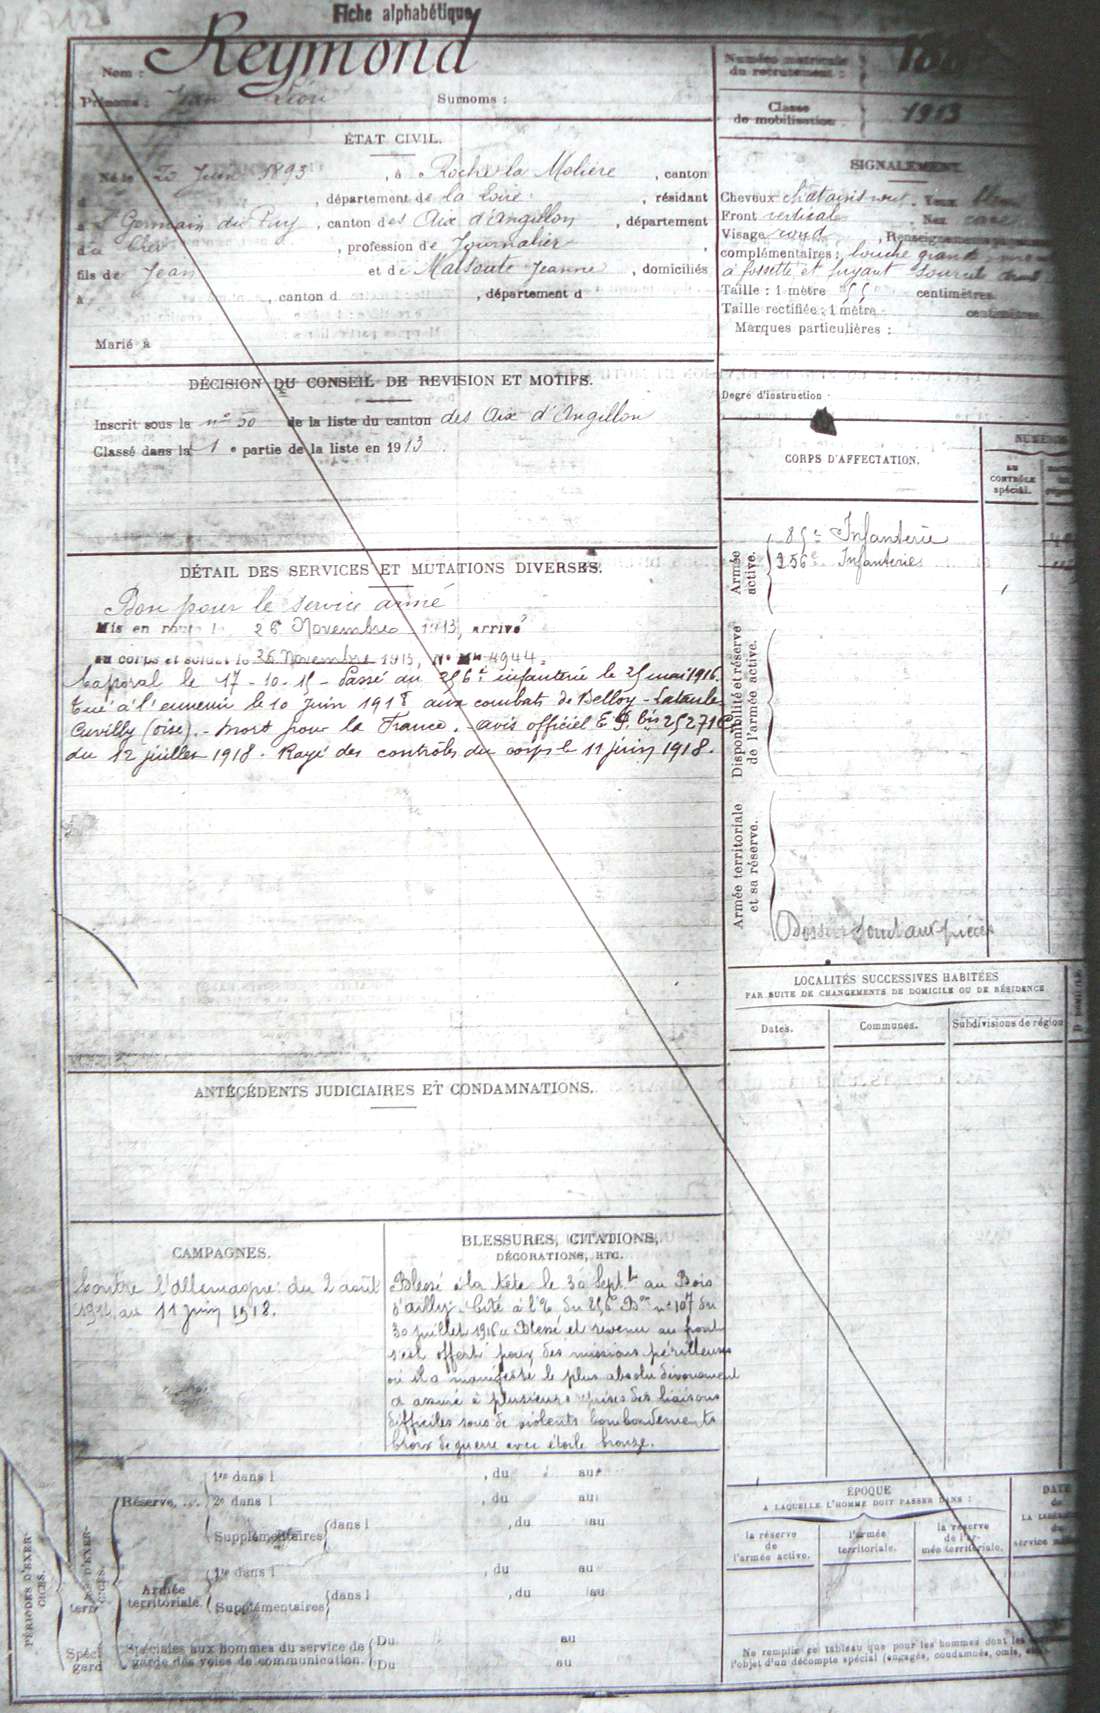 Fiche alphabétique
Nom : Reymond
Prénoms : Jean Léon Surnoms :
ÉTAT CIVIL.
Né le 20 Juin 1893, à Roche la Molière, canton
d , département de la Loire, résidant
à St Germain du Puy, canton des Aix d'Angillon, département
d u Cher, profession de Journalier,
fils de Jean et de Jeanne, domiciliés
à , canton d , département d
Marié à
DÉCISION DU CONSEIL DE REVISION ET MOTIFS.
Inscrit sous le n° 50 de la liste du canton des Aix d'Angillon
Classé dans la 1e partie de la liste en 1913.
DÉTAIL DES SERVICES ET MUTATIONS DIVERSES.
Bon pour le service armé
Mis en route le 26 Novembre 1913, arrivé
au corps et soldat le 26 Novembre 1913, N° Mle 4944.
Caporal le 17-10-15 - Passé au 256e infanterie le 25 mai 1916.
Tué à l'ennemi le 10 juin 1918 aux combats de Belloy - Lataule
Cuvilly (Oise). - Mort pour la France. - avis officiel bis
du 12 juillet 1918. Rayé des contrôles du corps le 11 juin 1918.
ANTÉCÉDENTS JUDICIAIRES ET CONDAMNATIONS.
CAMPAGNES.
Contre l'Allemagne du 2 août
1914 au 11 juin 1918.
BLESSURES, CITATIONS,
DÉCORATIONS, ETC.
Blessé à la tête le 30 Septbre au Bois
d'ailly. Cité à l'O. du 256e n° 107 du
30 juillet 1916 « Blessé et revenu au front
s'est offert pour des missions périlleuses
où il a manifesté le plus absolu dévouement
a assuré à plusieurs reprises des liaisons
difficiles sous de violents bombardements
Croix de guerre avec étoile bronze.
PÉRIODES D'EXERCICES.
Réserve, 1re dans l , du au
2e dans l , du au
Supplémentaires dans l , du au
Armée territoriale 1re dans l , du au
Supplémentaires dans l , du au
Spéciales aux hommes du service de Du au
garde des voies de communication. Du au
Numéro matricule
du recrutement :
Classe
de mobilisation 1913
SIGNALEMENT.
Cheveux chatains Yeux
Front vertical Nez
Visage rond, Renseignements
complémentaires : bouche grande,
à fossette et fuyant
Taille : 1 mètre 55 centimètres.
Taille rectifiée : 1 mètre centimètres.
Marques particulières :
Degré d'instruction
CORPS D'AFFECTATION.
AU
CONTRÔLE
spécial.
Armée
active.
85e Infanterie
256e Infanterie
Disponibilité et réserve
de l'armée active.
Armée territoriale
et sa réserve.
Dossier joint aux pièces
LOCALITÉS SUCCESSIVES HABITÉES
PAR SUITE DE CHANGEMENTS DE DOMICILE OU DE RÉSIDENCE
Dates. Communes. Subdivisions de région
ÉPOQUE
A LAQUELLE L'HOMME DOIT PASSER DANS :
la réserve
de
l'armée active.
l'armée
territoriale.
la réserve
de l'ar-
mée territoriale.
DATE
Ne remplir ce tableau que pour les hommes dont les
l'objet d'un décompte spécial (engagés, condamnés, omis,